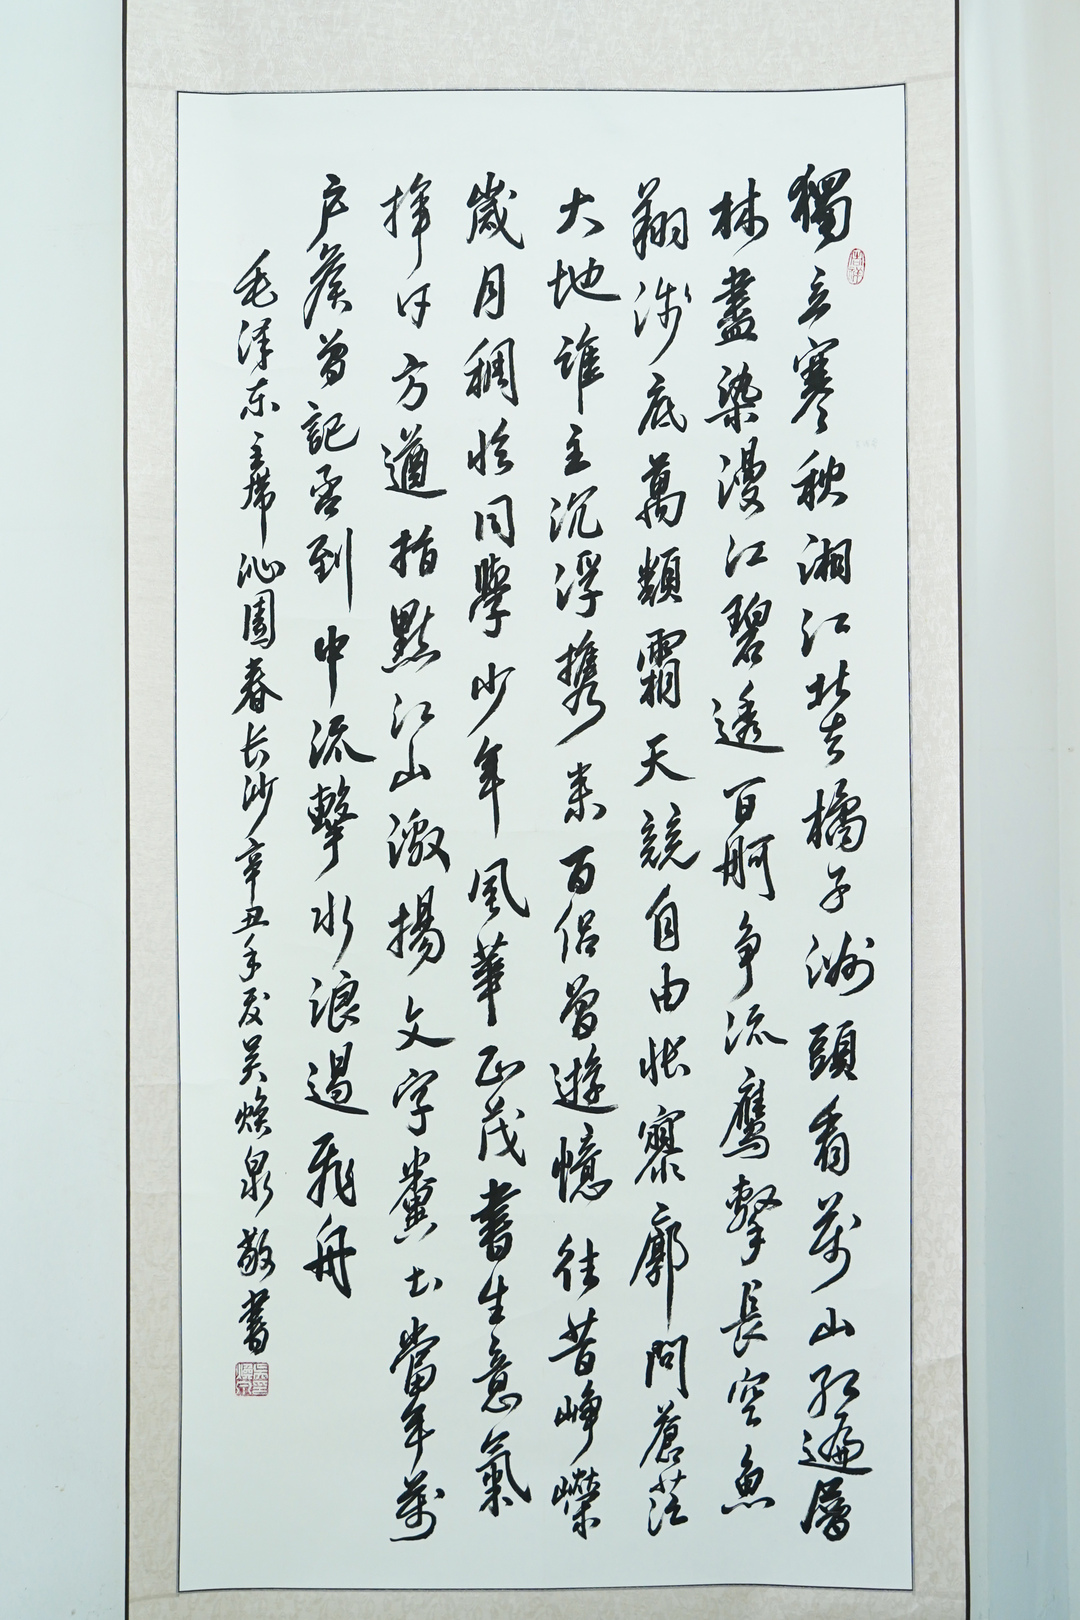 獨立寒秋湘江北去橘子洲頭看萬山紅遍層
林盡染漫江碧透百舸争流鷹擊長空魚
翔淺底萬類霜天競自由悵寥廓問蒼茫
大地誰主沉浮携来百侣曾遊憶往昔崢嶸
歲月稠恰同學少年風華正茂書生意氣
揮斥方遒指點江山激揚文字糞土當年萬
户矦曾記否到中流擊水浪遏飛舟
毛泽东主席沁園春长沙辛丑年夏吴焕泉敬書